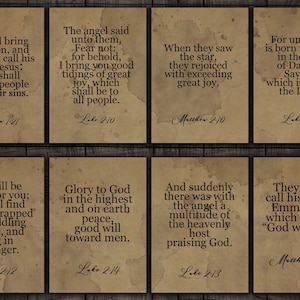 bring
and
call his
Jesus:
shall
people
sins.
The angel said
unto them,
Fear not:
for behold,
I bring you good
tidings of great
joy, which
shall be to
all people.
Luke 2:10
When they saw
the star,
they rejoiced
with exceeding
great joy.
Matthew 2:10
For un
is born
in the
of Da
Sav
which i
the L
Luke
ill be
or you;
l find
rapped
dling
and
g in
nger.
2:12
Glory to God
in the highest
and on earth
peace,
good will
toward men.
Luke 2:14
And suddenly
there was with
the angel a
multitude of
the heavenly
host
praising God.
Luke 2:13
They
call his
Emma
which
“God w
Matth